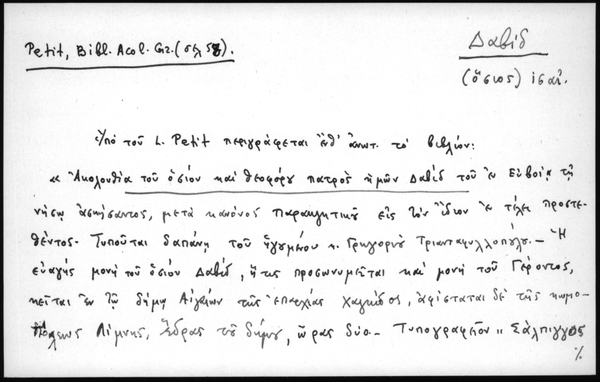 Petit, Bibl. Acol. Gr. (σελ 58).
Δαβίδ
(ὅσιος) ἰσαπ.
Ὑπὸ τοῦ L. Petit περιγράφεται ἐνθ' ἀνωτ. τὸ βιβλίον:
« Ἀκολουθία τοῦ ὁσίου καὶ θεοφόρου πατρὸς ἡμῶν Δαβὶδ τοῦ ἐν Εὐβοίᾳ τῇ
νήσῳ ἀσκήσαντος, μετὰ κανόνος παρακλητικοῦ εἰς τὸν ἴδιον ἐν τέλει προστε-
θέντος. Τυποῦται δαπάνῃ τοῦ ἡγουμένου κ. Γρηγορίου Τριανταφυλλοπούλου. - Ἡ
εὐαγὴς μονὴ τοῦ ὁσίου Δαβίδ, ἥτις προσωνυμεῖται καὶ μονὴ τοῦ Γέροντος,
κεῖται ἐν τῷ δήμῳ Αἰγαίων τῆς ἐπαρχίας Χαλκίδος, ἀφίσταται δὲ τῆς κωμο-
πόλεως Λίμνης, ἕδρας τοῦ δήμου, ὥρας δύο. - Τυπογραφεῖον " Σάλπιγγος
%